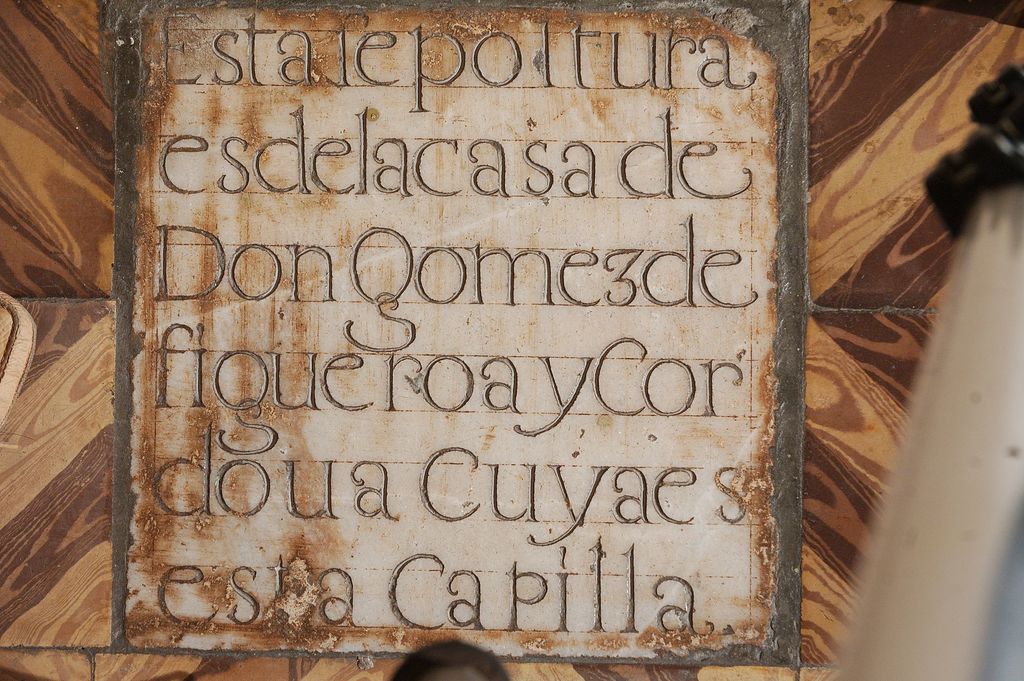 Esta sepoltura
es dela casa de
Don gomez de
figueroa y Cor
doua Cuya es
esta Capilla.